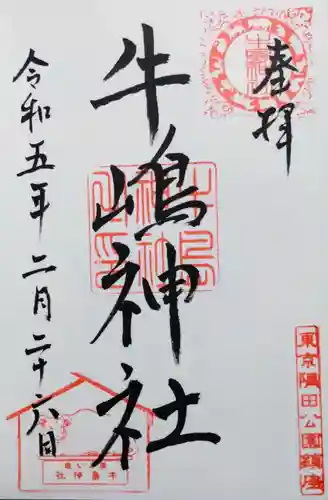 奉拝
牛嶋神社
令和五年二月二十六日
東京隅田公園鎮座
牛嶋神社